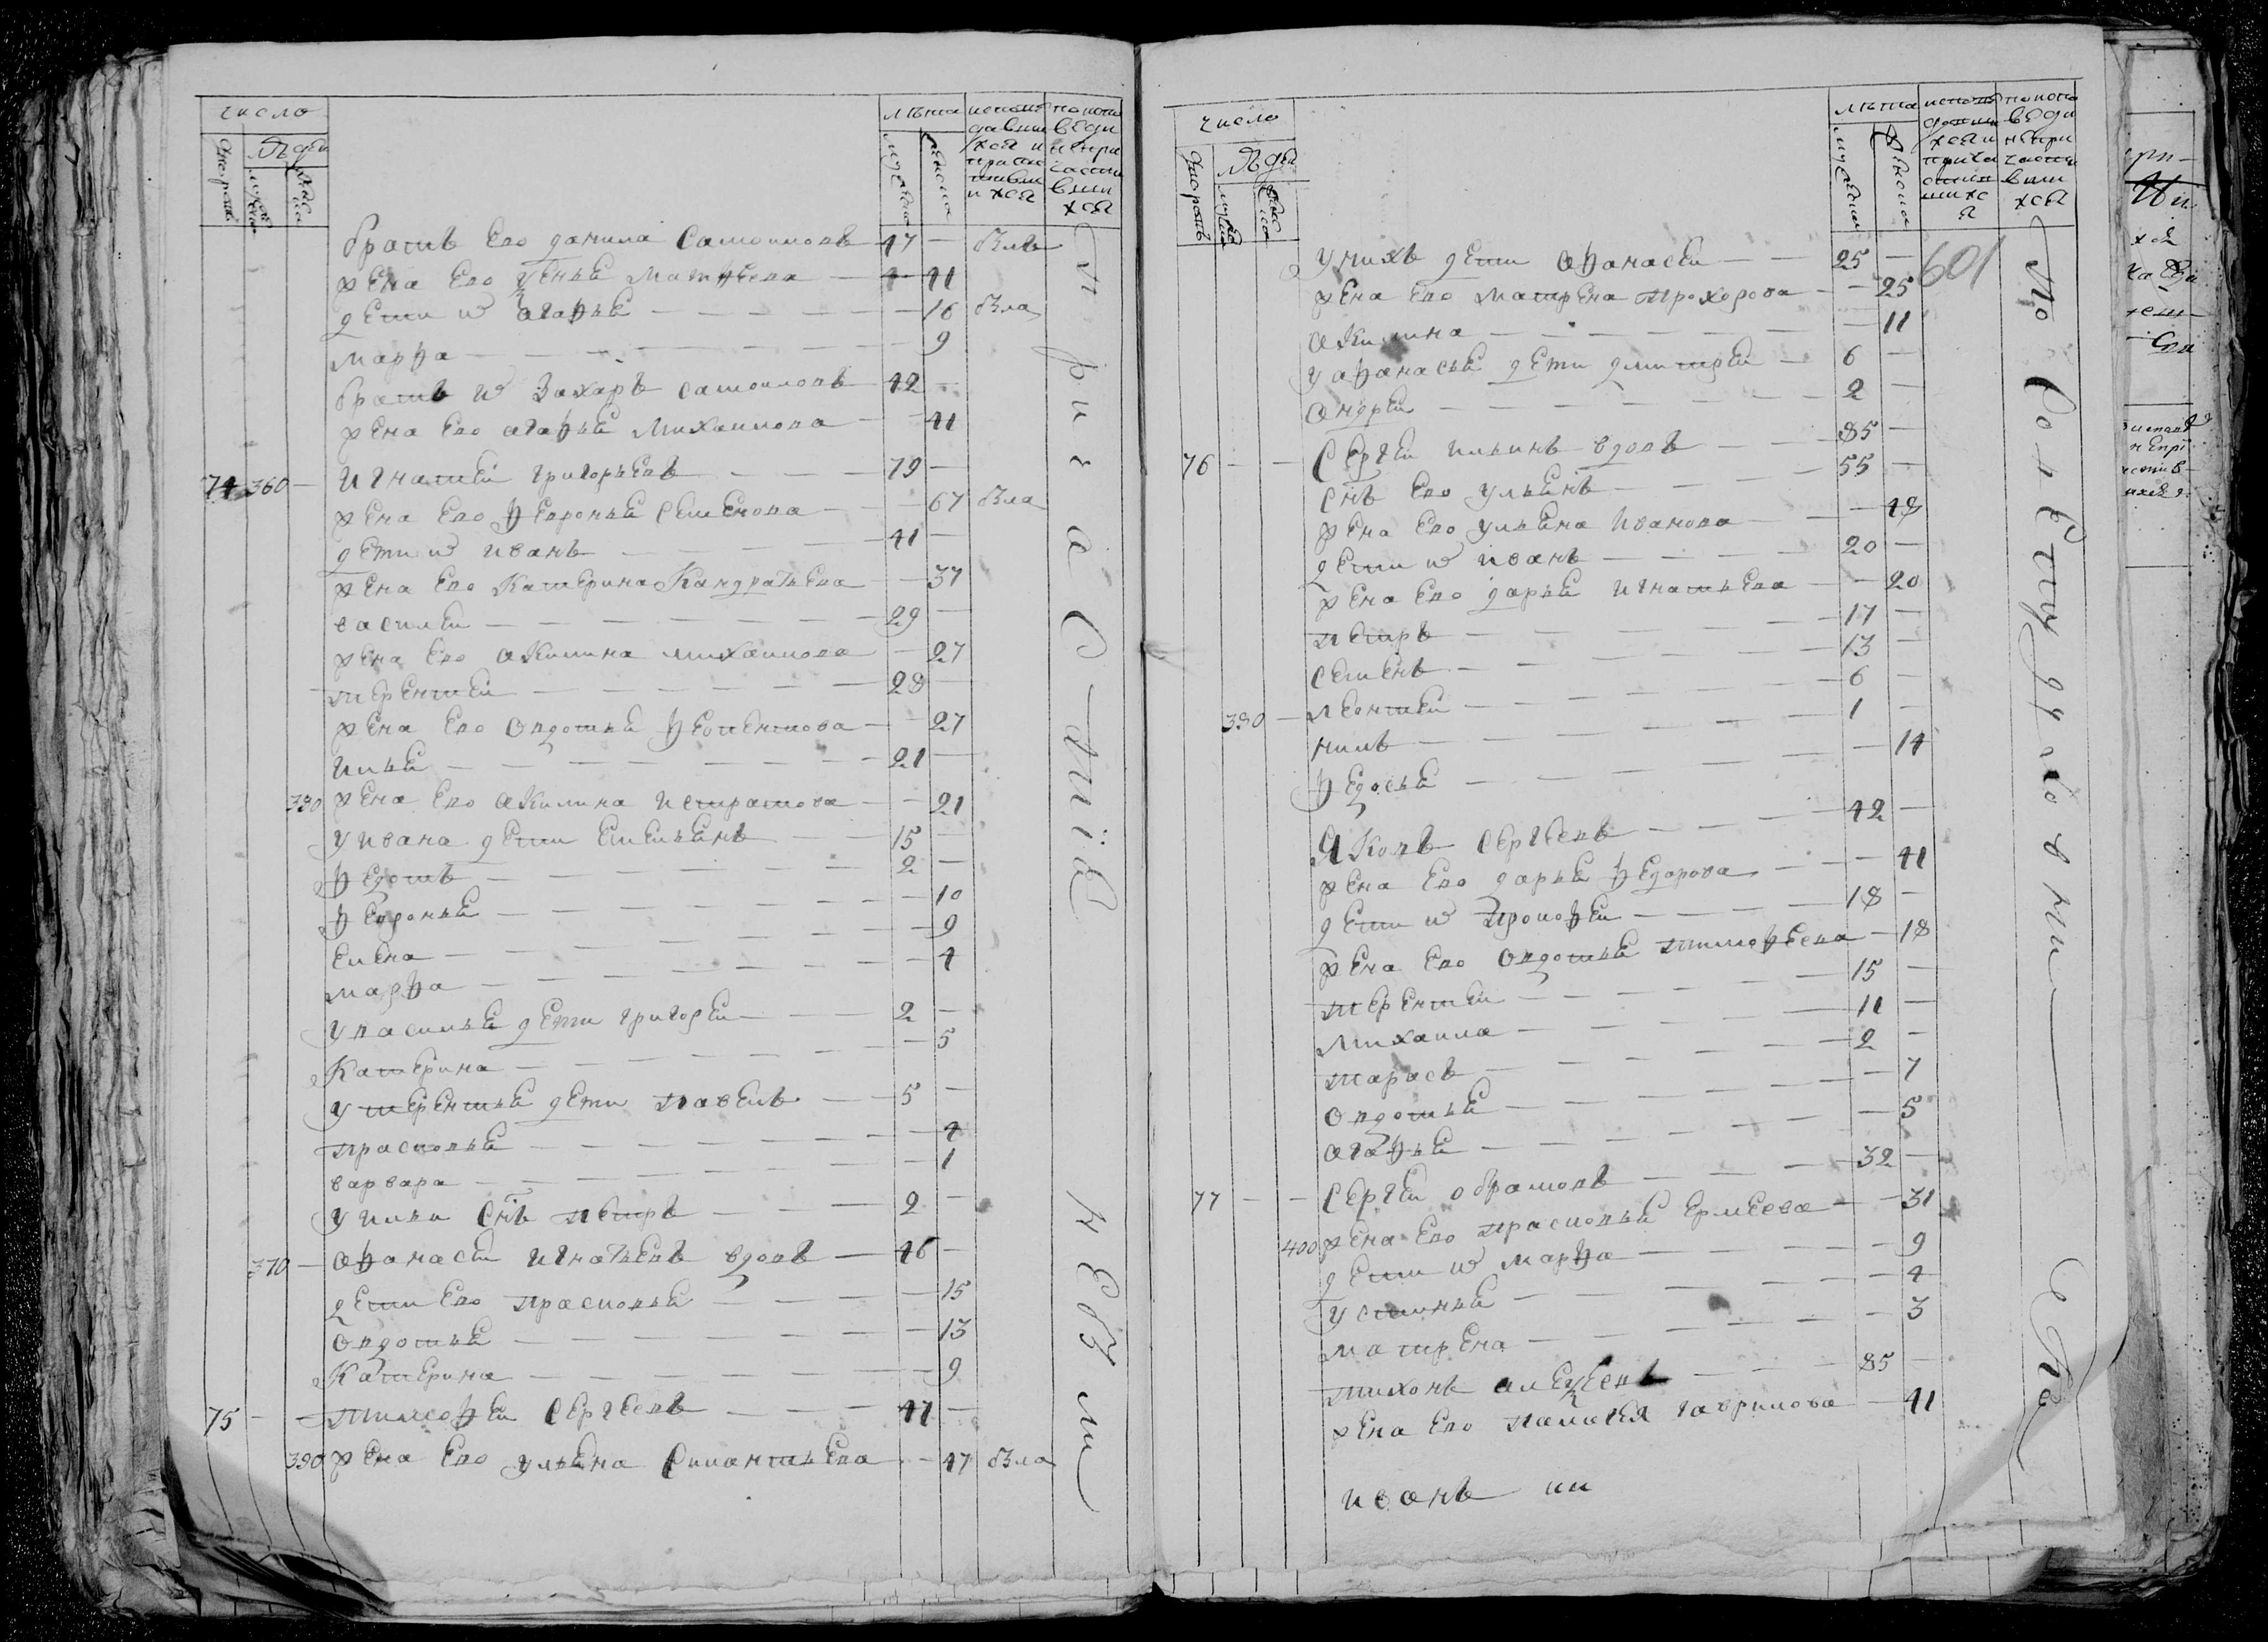 число
лѣта
двор
людей
мужеска
женска
мужеска
женска
исповѣдавшихся и причастившихся
по исповѣди не причастившихся
братъ ево данила самоиловъ 47 — был
жена ево ксенья матфеева — 41
дѣти их агафья — 16 была
марфа — 9
братъ их Захаръ самоиловъ 42 —
жена ево агафья михаилова — 41
74 360 — игнатей григорьевъ 79 —
жена ево февронья семенова — 67 была
дѣти их иванъ 41 —
жена ево катерина кандратьева — 37
василей 29 —
жена ево акилина михаилова — 27
терентей 28 —
жена ево овдотья — 27
илья 21 —
330 жена ево акилина истратова — 21
у ивана дѣти емельянъ 15 —
федотъ 2 —
февронья — 10
елена — 9
марфа — 4
у василья дѣти григорей 2 —
катерина — 5
у терентья дѣти павелъ 5 —
прасковья — 4
варвара — 1
у ильи снъ петръ 2 —
370 — афанасей игнатьевъ вдовъ 46 —
дѣти ево прасковья — 15
овдотья — 13
катерина — 9
75 — — тимофей сергеевъ 47 —
390 жена ево ульяна — 47 была
причастія
число
лѣта
двор
людей
мужеска
женска
мужеска
женска
исповѣдавшихся и причастившихся
по исповѣди не причастившихся
601
у нихъ дети афанасей 25 —
жена ево матрена прохорова — 25
акилина — 11
у афанасья дети дмитрей 6 —
андрей 2 —
76 — — Сергей ильинъ вдовъ 85 —
снъ ево ульянъ 55 —
жена ево ульяна иванова — 48
дети их иванъ 20 —
жена ево дарья игнатьева — 20
петръ 17 —
семенъ 13 —
леонтей 6 —
380 — нилъ 1 —
федосья — 14
Яковъ сергеевъ 42 —
жена ево дарья федорова — 41
дети их прокофей 18 —
жена ево овдотья тимофеева — 18
терентей 15 —
михаила 11 —
тарасъ 2 —
овдотья — 7
агафья — 5
77 — — Сергей абрамовъ 32 —
400 жена ево прасковья ермеева — 31
дети их марфа — 9
устинья — 4
матрена — 3
тихонъ алексеевъ 85 —
жена ево палагея гаврилова — 41
иванъ